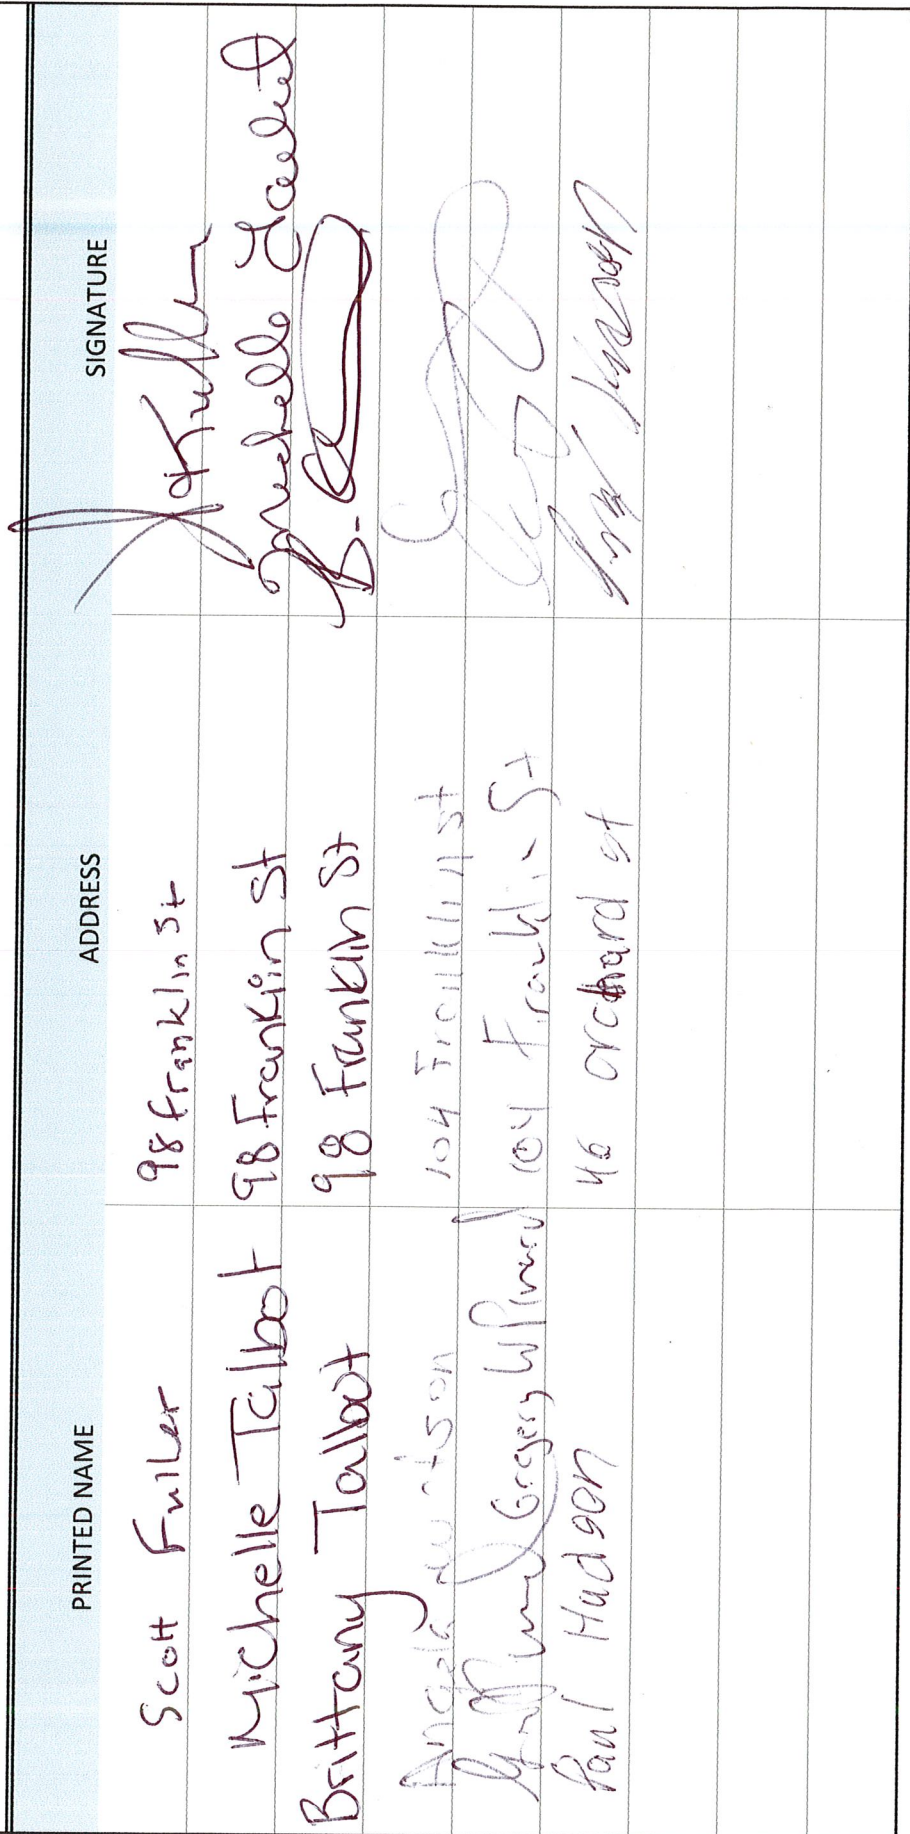 PRINTED NAME ADDRESS SIGNATURE
Scott Fuller 98 Franklin St
Michelle Talbot 98 Franklin St Michelle Talbot
Brittany Talbot 98 Franklin St B.
Angela 104 Franklin st
Gregory W Pinard 104 Franklin St
Paul Hudson 46 orchard st Paul Hudson